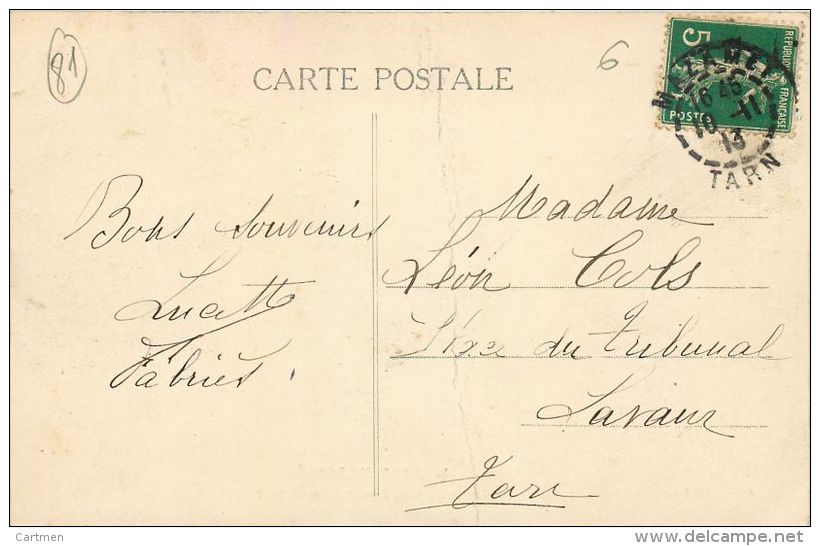 81
6
CARTE POSTALE
5
RÉPUBLIQUE FRANÇAISE
POSTES
MAZAMET
16 45
10 -11
13
TARN
Bons souvenirs
Lucette
Fabriès
Madame
Léon Cols
Place du Tribunal
Lavaur
Tarn
Cartmen
www.delcampe.net